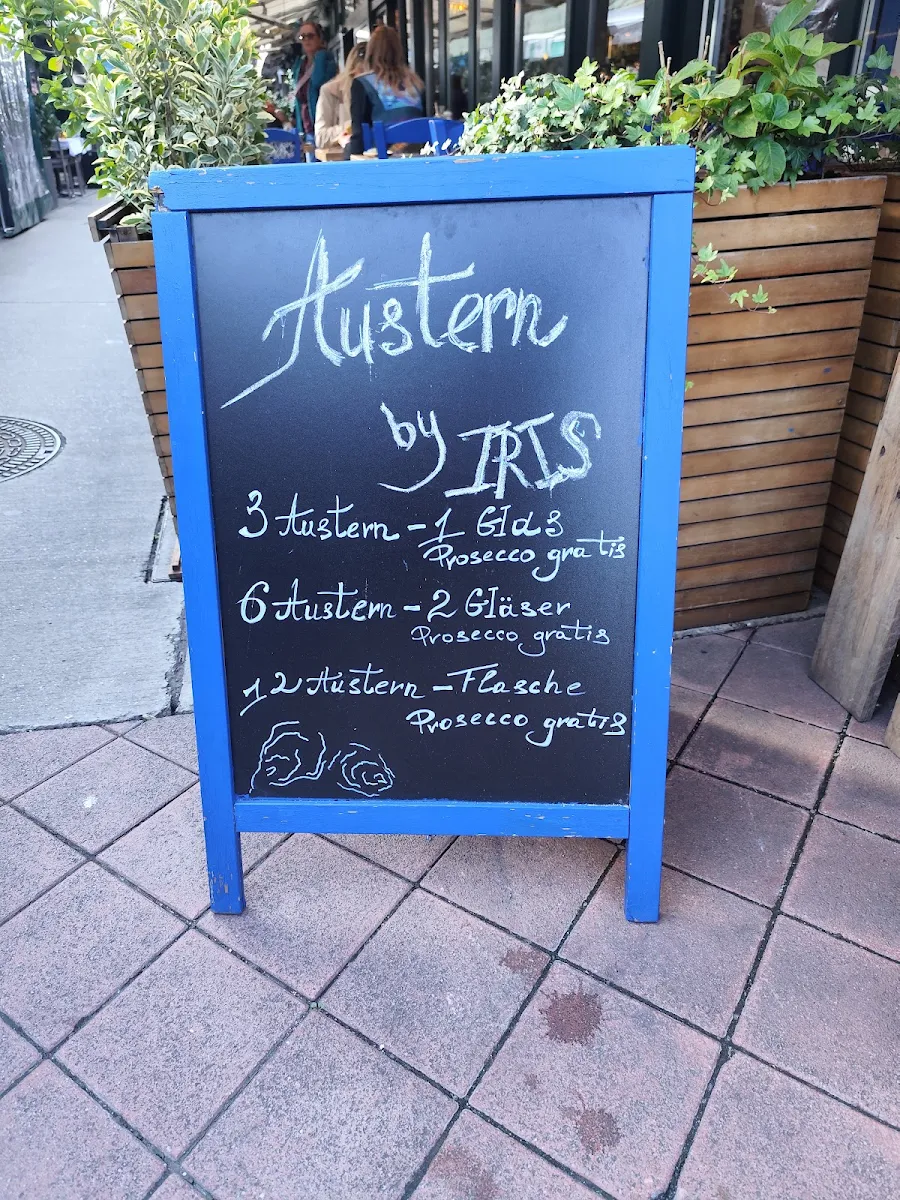 Austern
by IRIS
3 Austern - 1 Glas
Prosecco gratis
6 Austern - 2 Gläser
Prosecco gratis
12 Austern - Flasche
Prosecco gratis